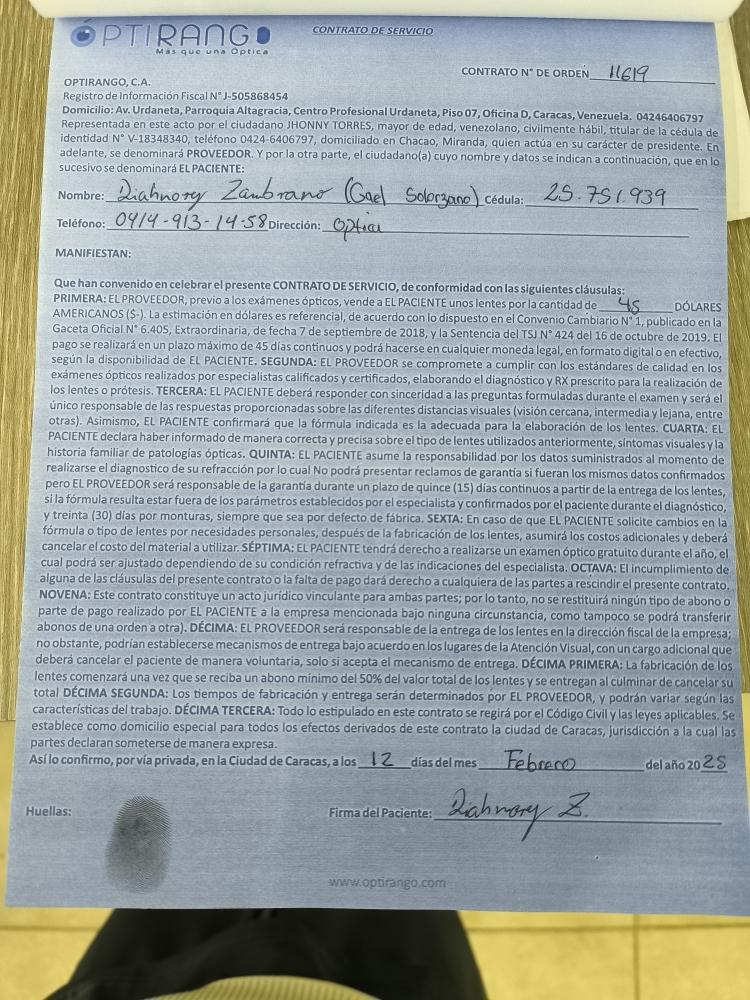 OPTIRANGO
Más que una Óptica
CONTRATO DE SERVICIO
CONTRATO N° DE ORDEN 11619
OPTIRANGO, C.A.
Registro de Información Fiscal N° J-505868454
Domicilio: Av. Urdaneta, Parroquia Altagracia, Centro Profesional Urdaneta, Piso 07, Oficina D, Caracas, Venezuela. 04246406797
Representada en este acto por el ciudadano JHONNY TORRES, mayor de edad, venezolano, civilmente hábil, titular de la cédula de
identidad N° V-18348340, teléfono 0424-6406797, domiciliado en Chacao, Miranda, quien actúa en su carácter de presidente. En
adelante, se denominará PROVEEDOR. Y por la otra parte, el ciudadano(a) cuyo nombre y datos se indican a continuación, que en lo
sucesivo se denominará EL PACIENTE:
Nombre: Diahnory Zambrano (Gael Solorzano) Cédula: 25.751.939
Teléfono: 0414-913-14-58 Dirección: Optica
MANIFIESTAN:
Que han convenido en celebrar el presente CONTRATO DE SERVICIO, de conformidad con las siguientes cláusulas:
PRIMERA: EL PROVEEDOR, previo a los exámenes ópticos, vende a EL PACIENTE unos lentes por la cantidad de 45 DÓLARES
AMERICANOS ($-). La estimación en dólares es referencial, de acuerdo con lo dispuesto en el Convenio Cambiario N° 1, publicado en la
Gaceta Oficial N° 6.405, Extraordinaria, de fecha 7 de septiembre de 2018, y la Sentencia del TSJ N° 424 del 16 de octubre de 2019. El
pago se realizará en un plazo máximo de 45 días continuos y podrá hacerse en cualquier moneda legal, en formato digital o en efectivo,
según la disponibilidad de EL PACIENTE. SEGUNDA: EL PROVEEDOR se compromete a cumplir con los estándares de calidad en los
exámenes ópticos realizados por especialistas calificados y certificados, elaborando el diagnóstico y RX prescrito para la realización de
los lentes o prótesis. TERCERA: EL PACIENTE deberá responder con sinceridad a las preguntas formuladas durante el examen y será el
único responsable de las respuestas proporcionadas sobre las diferentes distancias visuales (visión cercana, intermedia y lejana, entre
otras). Asimismo, EL PACIENTE confirmará que la fórmula indicada es la adecuada para la elaboración de los lentes. CUARTA: EL
PACIENTE declara haber informado de manera correcta y precisa sobre el tipo de lentes utilizados anteriormente, síntomas visuales y la
historia familiar de patologías ópticas. QUINTA: EL PACIENTE asume la responsabilidad por los datos suministrados al momento de
realizarse el diagnostico de su refracción por lo cual No podrá presentar reclamos de garantía si fueran los mismos datos confirmados
pero EL PROVEEDOR será responsable de la garantía durante un plazo de quince (15) días continuos a partir de la entrega de los lentes,
si la fórmula resulta estar fuera de los parámetros establecidos por el especialista y confirmados por el paciente durante el diagnóstico,
y treinta (30) días por monturas, siempre que sea por defecto de fábrica. SEXTA: En caso de que EL PACIENTE solicite cambios en la
fórmula o tipo de lentes por necesidades personales, después de la fabricación de los lentes, asumirá los costos adicionales y deberá
cancelar el costo del material a utilizar. SÉPTIMA: EL PACIENTE tendrá derecho a realizarse un examen óptico gratuito durante el año, el
cual podrá ser ajustado dependiendo de su condición refractiva y de las indicaciones del especialista. OCTAVA: El incumplimiento de
alguna de las cláusulas del presente contrato o la falta de pago dará derecho a cualquiera de las partes a rescindir el presente contrato.
NOVENA: Este contrato constituye un acto jurídico vinculante para ambas partes; por lo tanto, no se restituirá ningún tipo de abono o
parte de pago realizado por EL PACIENTE a la empresa mencionada bajo ninguna circunstancia, como tampoco se podrá transferir
abonos de una orden a otra). DÉCIMA: EL PROVEEDOR será responsable de la entrega de los lentes en la dirección fiscal de la empresa;
no obstante, podrían establecerse mecanismos de entrega bajo acuerdo en los lugares de la Atención Visual, con un cargo adicional que
deberá cancelar el paciente de manera voluntaria, solo si acepta el mecanismo de entrega. DÉCIMA PRIMERA: La fabricación de los
lentes comenzará una vez que se reciba un abono mínimo del 50% del valor total de los lentes y se entregan al culminar de cancelar su
total DÉCIMA SEGUNDA: Los tiempos de fabricación y entrega serán determinados por EL PROVEEDOR, y podrán variar según las
características del trabajo. DÉCIMA TERCERA: Todo lo estipulado en este contrato se regirá por el Código Civil y las leyes aplicables. Se
establece como domicilio especial para todos los efectos derivados de este contrato la ciudad de Caracas, jurisdicción a la cual las
partes declaran someterse de manera expresa.
Así lo confirmo, por vía privada, en la Ciudad de Caracas, a los 12 días del mes Febrero del año 2025
Huellas:
Firma del Paciente: Diahnory Z.
www.optirango.com